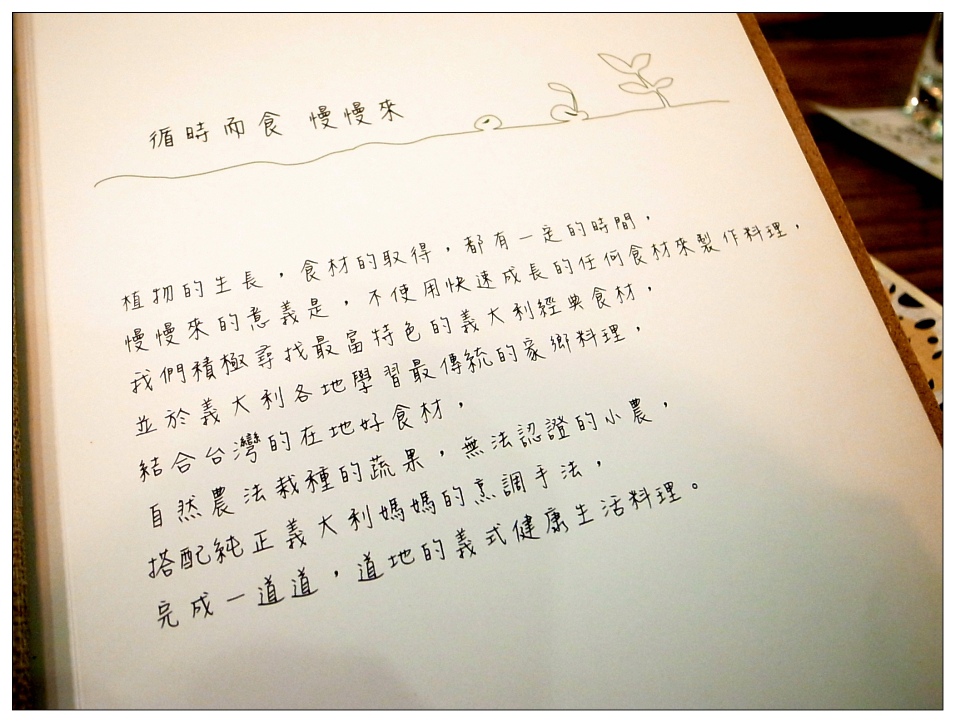 循時而食 慢慢來
植物的生長，食材的取得，都有一定的時間，
慢慢來的意義是，不使用快速成長的任何食材來製作料理，
我們積極尋找最富特色的義大利經典食材，
並於義大利各地學習最傳統的家鄉料理，
結合台灣的在地好食材，
自然農法栽種的蔬果，無法認證的小農，
搭配純正義大利媽媽的烹調手法，
完成一道道，道地的義式健康生活料理。